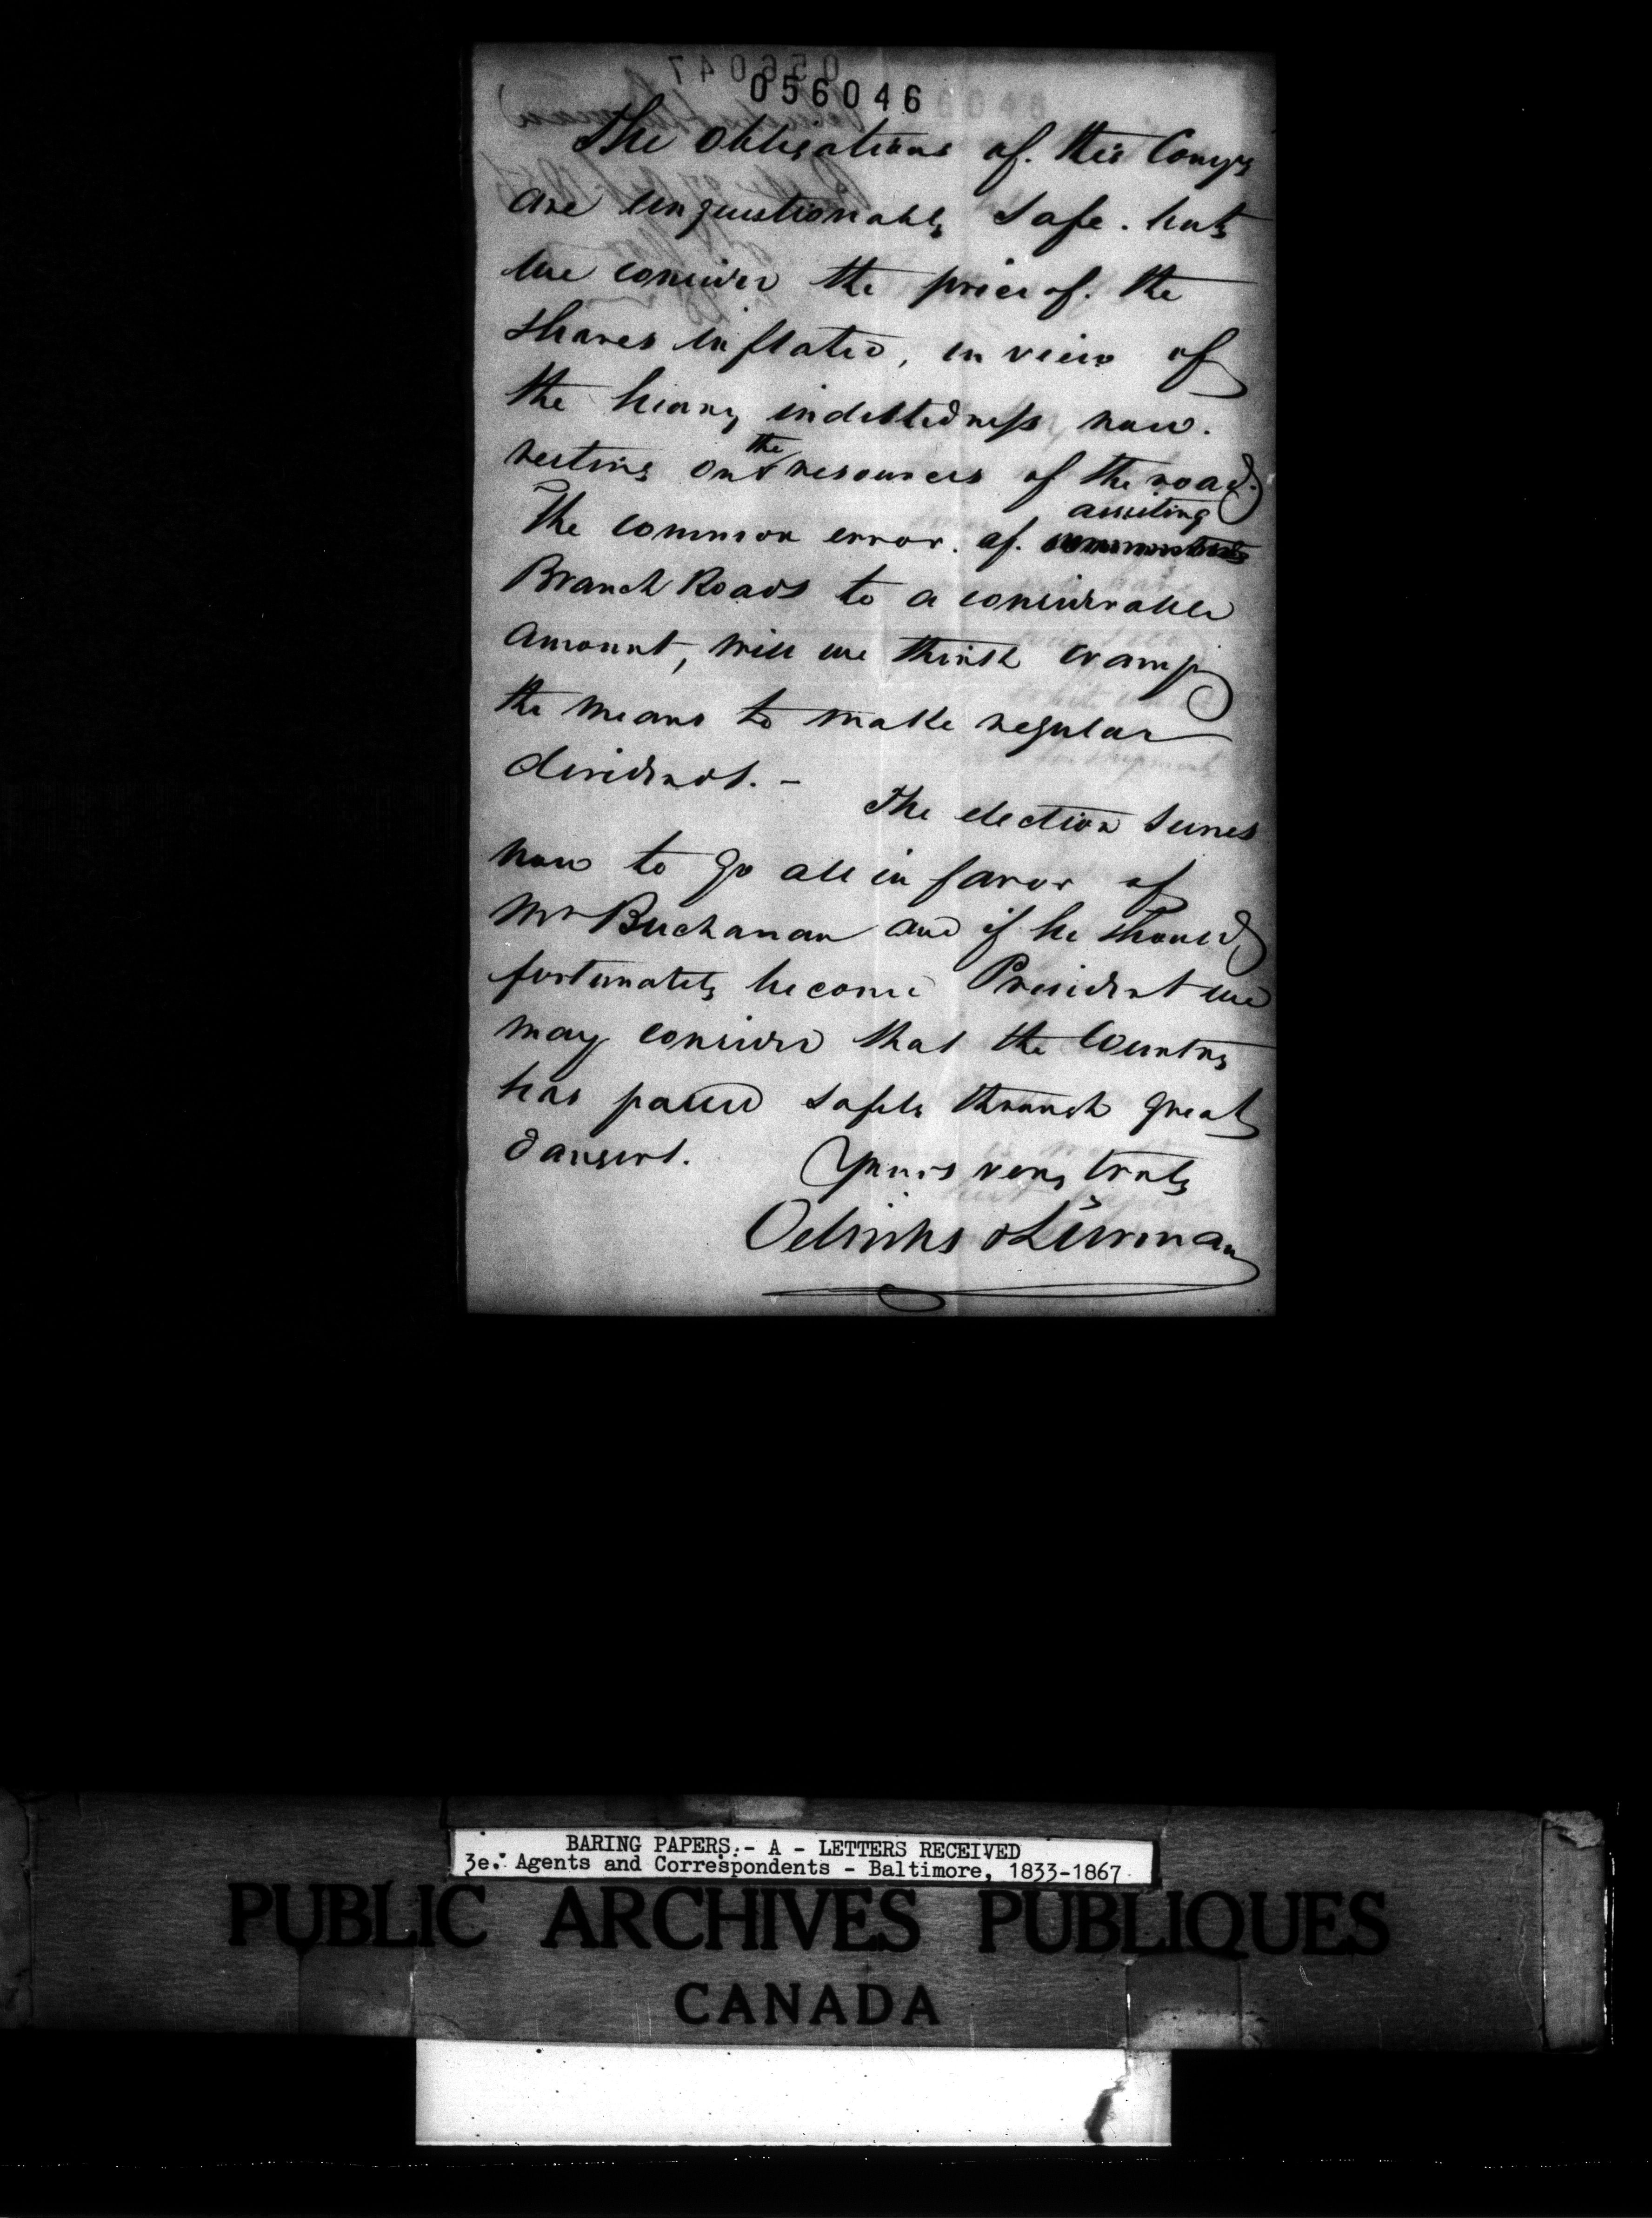 056046
The obligations of this Compy
are unquestionably safe. but
we consider the price of. the
shares inflated, in view of
the heavy indebtedness now.
resting on the resources of the road.
The common error. of. assisting
Branch Roads to a considerable
amount, will we think cramp
the means to make regular
dividends. -
The election seems
now to go all in favor of
Mr Buchanan and if he should
fortunately become President we
may consider that the Country
has passed safely through great
dangers.
Yours very truly
Oelrichs & Lürman
BARING PAPERS.- A - LETTERS RECEIVED
3e. Agents and Correspondents - Baltimore, 1833-1867
PUBLIC ARCHIVES PUBLIQUES
CANADA